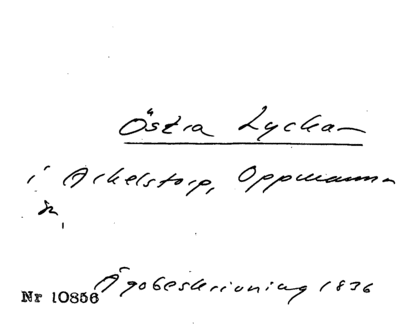 Östra Lyckan
i Arkelstorp, Oppmanna
sn,
Ägobeskrivning 1836
Nr 10856